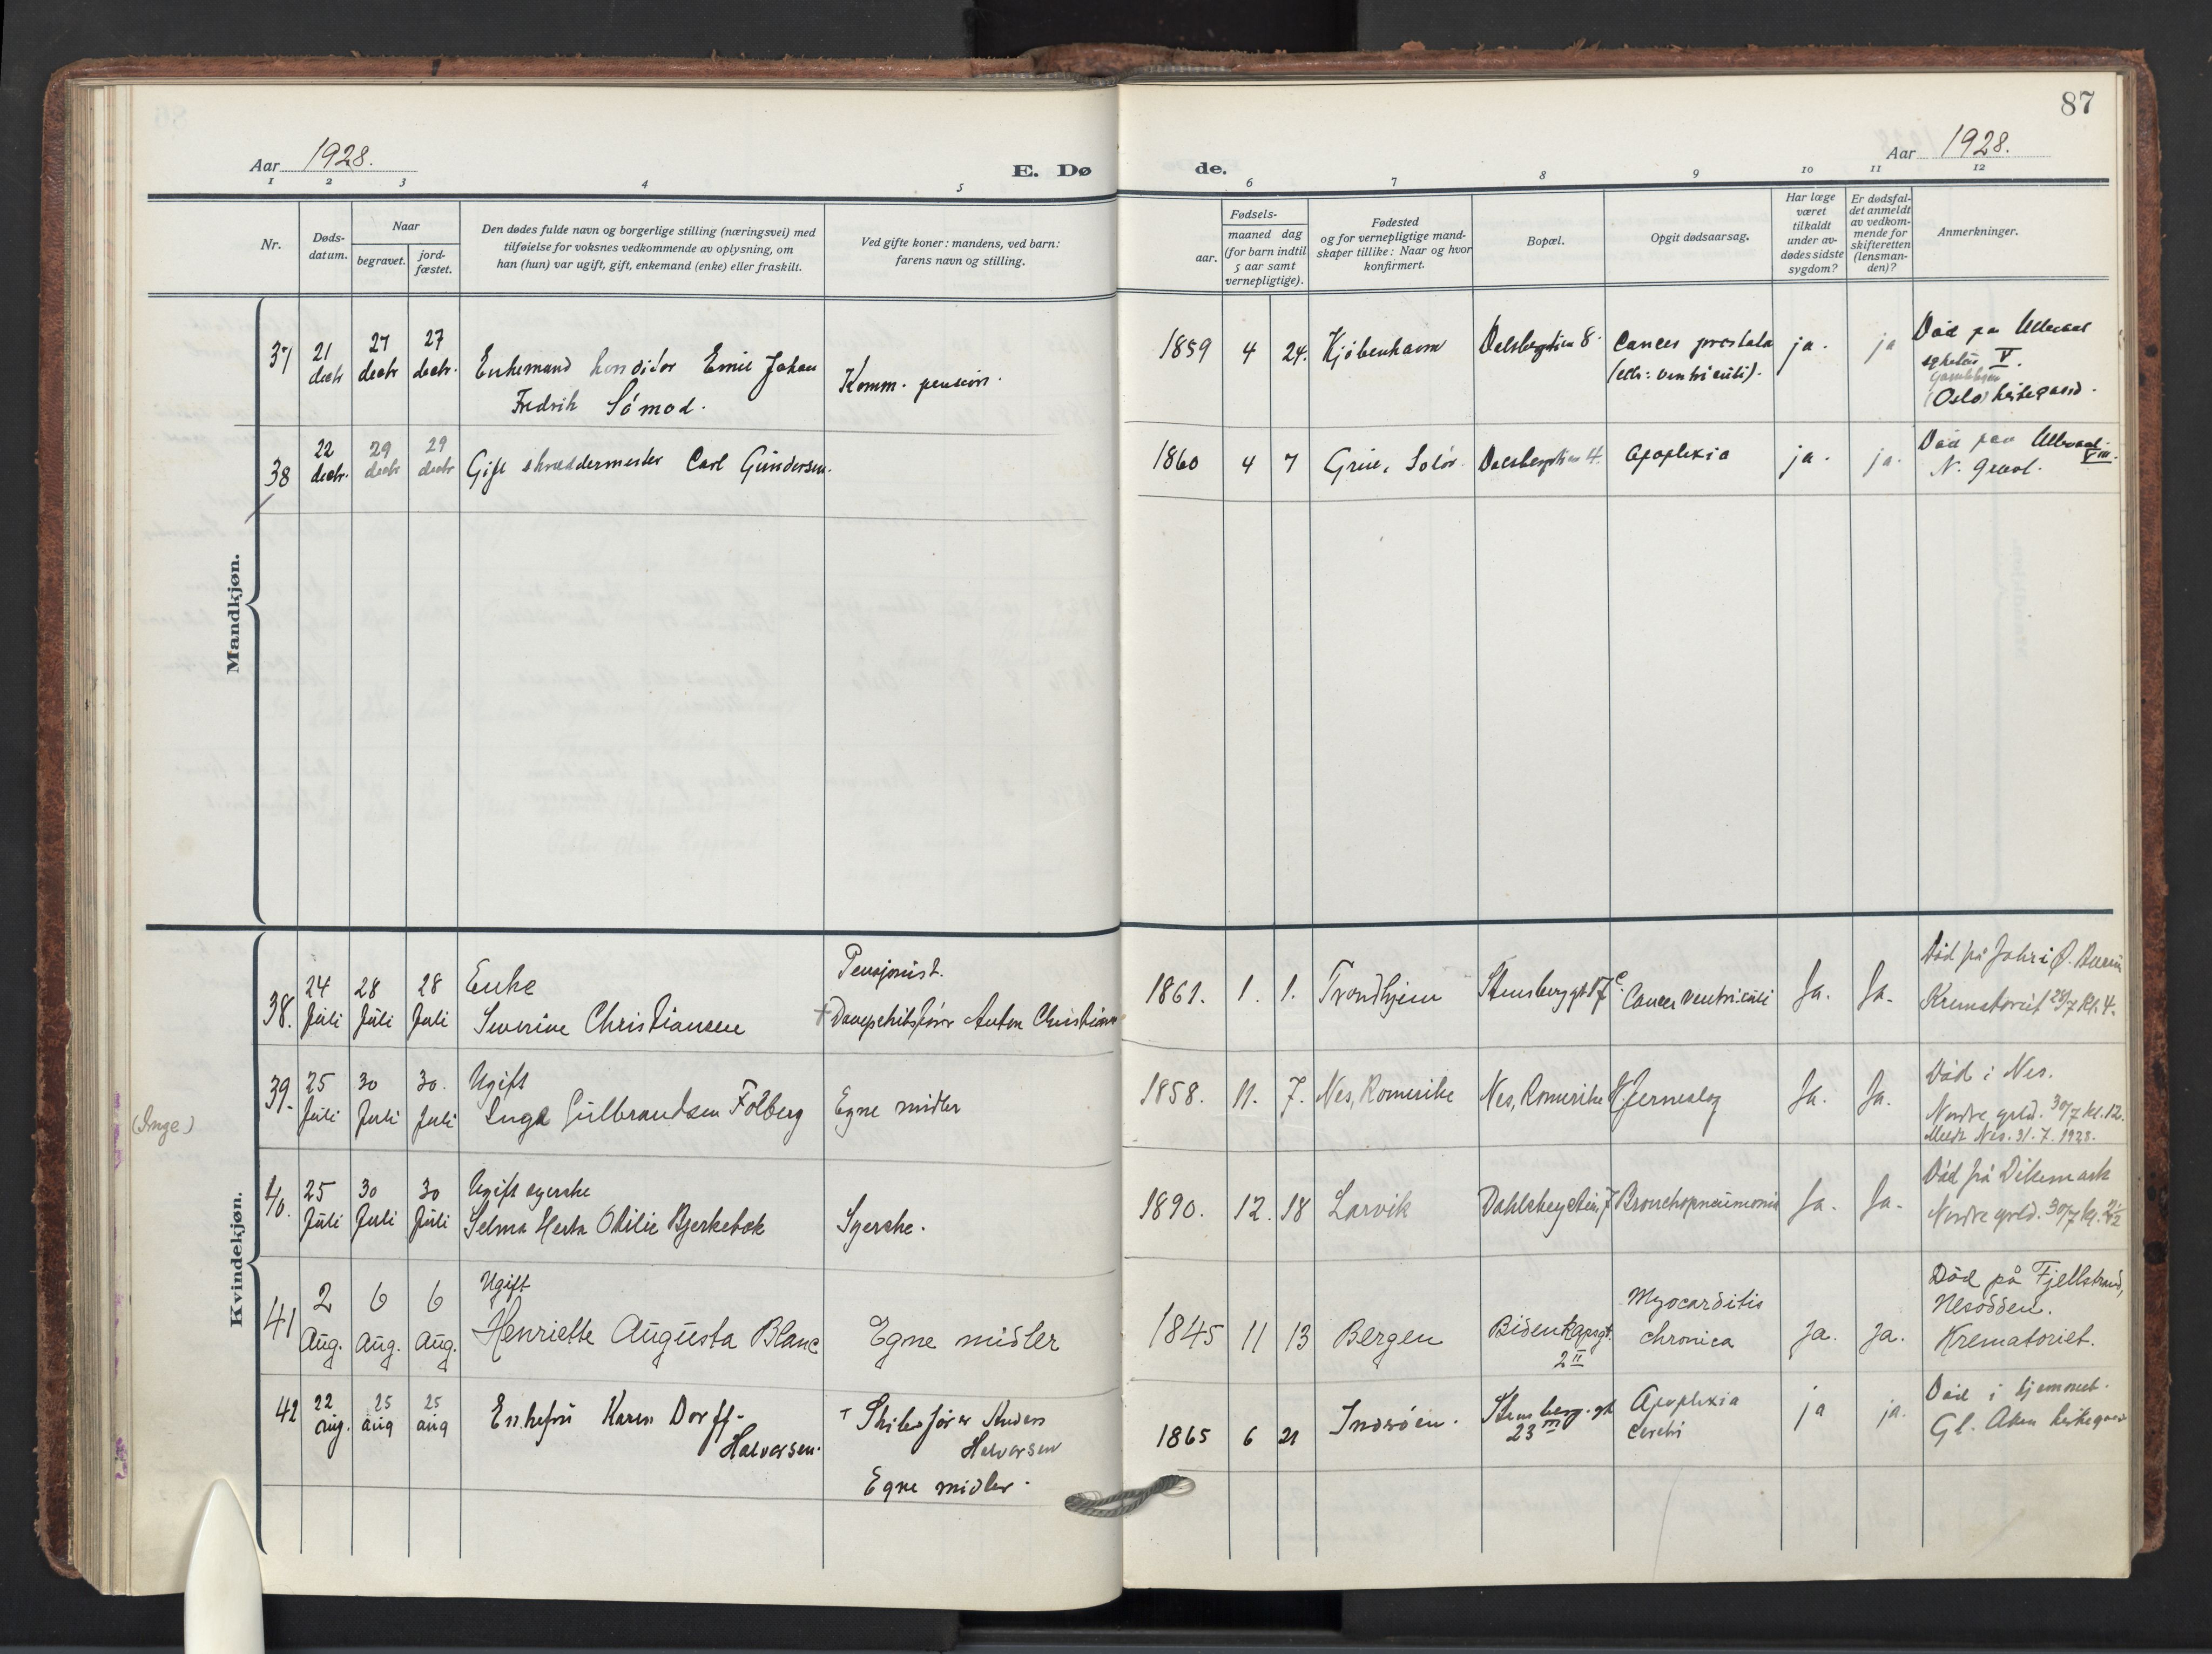 87
Aar 1928.
E. Dø
de.
Aar 1928.
1 2 3 4 5 6 7 8 9 10 11 12
Nr.
Døds-
datum.
Naar
begravet.
jord-
fæstet.
Den dødes fulde navn og borgerlige stilling (næringsvei) med
tilføielse for voksnes vedkommende av oplysning, om
han (hun) var ugift, gift, enkemand (enke) eller fraskilt.
Ved gifte koner: mandens, ved barn:
farens navn og stilling.
Fødsels-
aar.
maaned dag
(for barn indtil
5 aar samt
vernepligtige).
Fødested
og for vernepligtige mand-
skaper tillike: Naar og hvor
konfirmert.
Bopæl.
Opgit dødsaarsag.
Har læge
været
tilkaldt
under av-
dødes sidste
sygdom?
Er dødsfal-
det anmeldt
av vedkom-
mende for
skifteretten
(lensman-
den)?
Anmerkninger.
Mandkjøn.
37 21 decbr 27 decbr 27 decbr.
Enkemand konditor Emil Johan
Fredrik Sømod.
Komm. pension.
1859 4 24. Kjøbenhavn
Dalsbergstien 8.
Cancer prostata
(et c: ventriculi).
ja. ja
Død paa Ullevaal
sykehus V.
Gamlebyen
(Oslo) kirkegaard.
38 22 decbr. 29 decbr 29 decbr
Gift skræddermester Carl Gundersen.
1860 4 7 Grue, Solør. Dalsbergstien 4. Apoplexia ja. ja.
Død paa Ullevaal VIII.
N. Gravl.
Kvindekjøn.
38. 24 Juli 28 Juli 28 Juli
Enke
Severine Christiansen
Pensjonist.
† Dampskibsfører Anton Christiansen
1861. 1. 1. Trondhjem Stensberggt 17 c. Cancer ventriculi Ja. Ja.
Død på Jahr i Ø. Bærum
Krematoriet 28/7 kl. 4.
(Inge)
39. 25 Juli 30 Juli 30. Juli
Ugift
Inga Gulbrandsen Folberg
Egne midler
1858. 11. 7. Nes, Romerike Nes, Romerike Hjerneslag Ja. Ja.
Død i Nes.
Nordre gvld. 30/7 kl. 12.
Meldt Nes. 31. 7. 1928.
40. 25 Juli 30 Juli 30 Juli
Ugift syerske
Selma Herta Otilie Bjerkebæk
Syerske.
1890. 12. 18 Larvik Dahlsbergstien 7 Bronchopneumonia Ja. Ja.
Død på Dikemark
Nordre gvld. 30/7 kl. 2½
41 2 Aug. 6 Aug. 6 Aug.
Ugift
Henriette Augusta Blanc
Egne midler
1845 11 13 Bergen
Bidenkapsgt.
2 II
Myocarditis
chronica
Ja. Ja.
Død på Fjellstrand,
Nesodden.
Krematoriet.
42 22 aug. 25 aug 25 aug
Enkefru Karen Dorff-
Halvorsen.
† Skibsfører Anders
Halvorsen
Egne midler.
1865 6 21 Inderøen.
Stensberg. gt
23 III
Apoplexia
cerebri
ja ja.
Død i hjemmet.
Gl. Aker kirkegaard